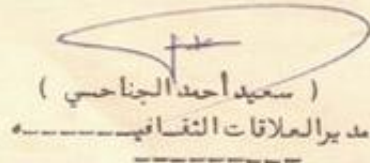 ( سعيد أحمد الجناحي )
مدير العلاقات الثقافيـــــــه